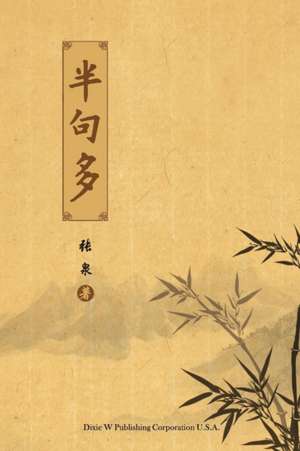 半句多
张泉
著
Dixie W Publishing Corporation U.S.A.